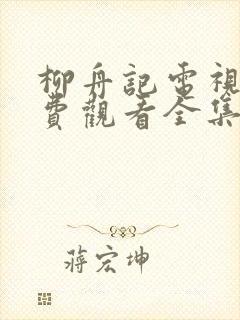 柳舟記電視
費觀看全集
蔣宏坤